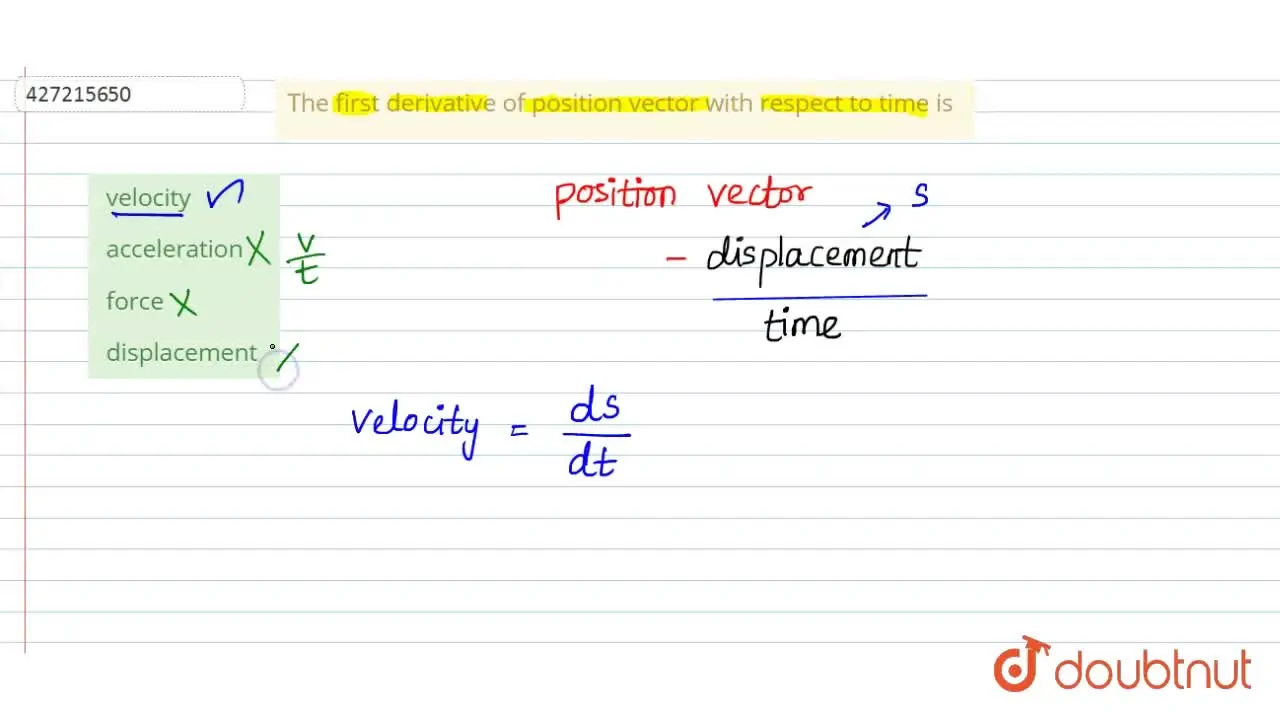 427215650
The first derivative of position vector with respect to time is
velocity
acceleration X v/t
force X
displacement
position vector
s
- displacement
time
velocity = ds/dt
doubtnut